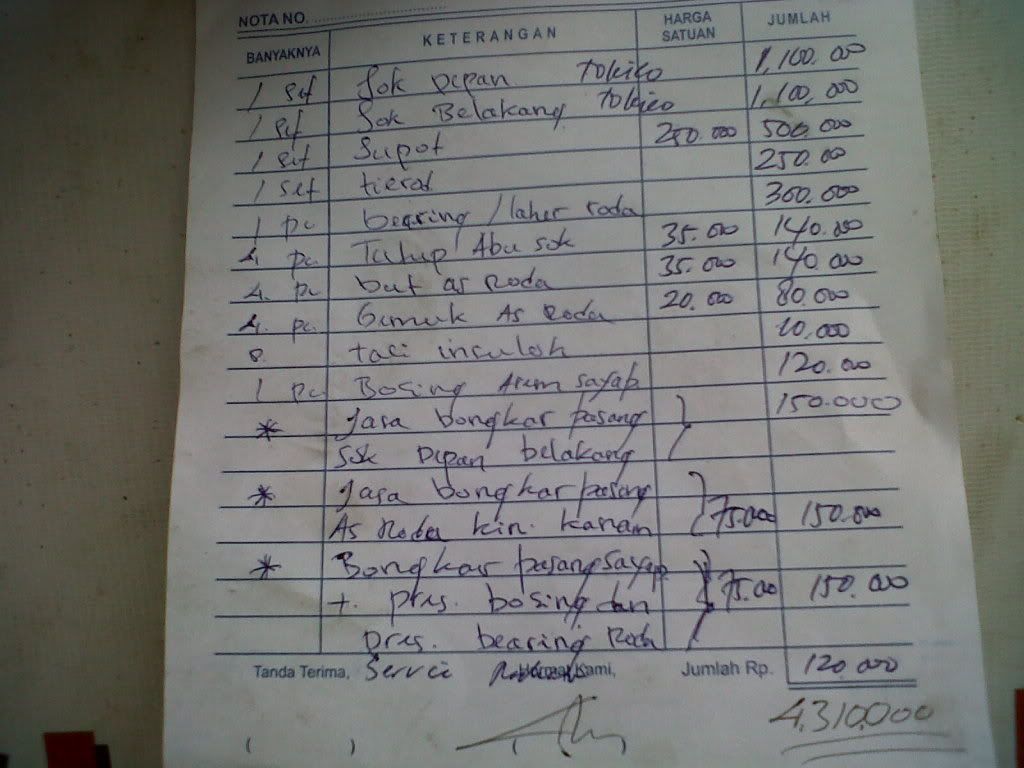 NOTA NO.
BANYAKNYA KETERANGAN HARGA SATUAN JUMLAH
1 set Sok Depan Tokiko 1,100.000
1 set Sok Belakang Tokico 1,100,000
1 set Supot 250.000 500.000
1 set tierod 250.000
1 pc bearing / laher roda 300.000
4 pc Tutup Abu sok 35.000 140.000
4 pc but as Roda 35.000 140.000
4 pc Gemuk As Roda 20.000 80.000
taci 10,000
1 pc Bosing Arem sayap 120.000
* Jasa bongkar pasang 150.000
Sok Depan belakang
* Jasa bongkar pasang
As Roda kiri. kanan 75.000 150.000
* Bongkar pasang sayap
+. pres. bosing dan 75.00 150.000
pres. bearing Roda
Tanda Terima, Servic Kami, Jumlah Rp. 120.000
4,310,000
( )